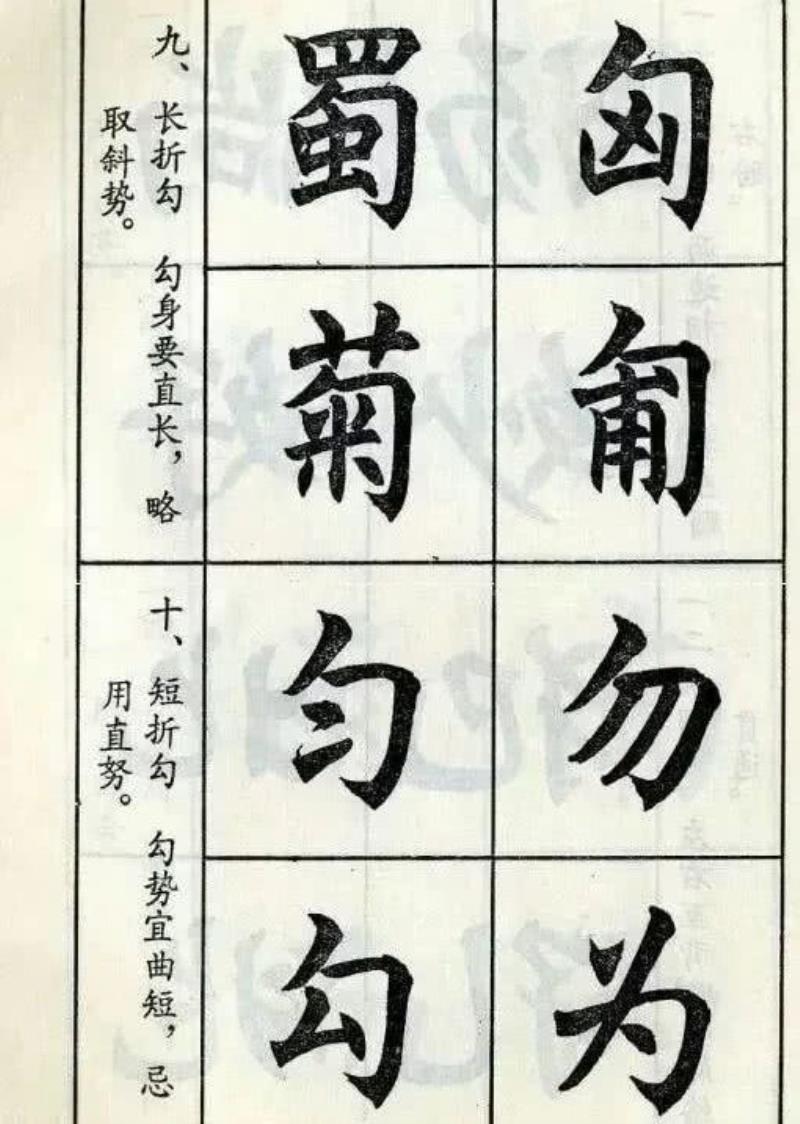 九、长折勾 勾身要直长，略
取斜势。
匈
匍
蜀
菊
十、短折勾 勾势宜曲短，忌
用直努。
勿
为
匀
勾